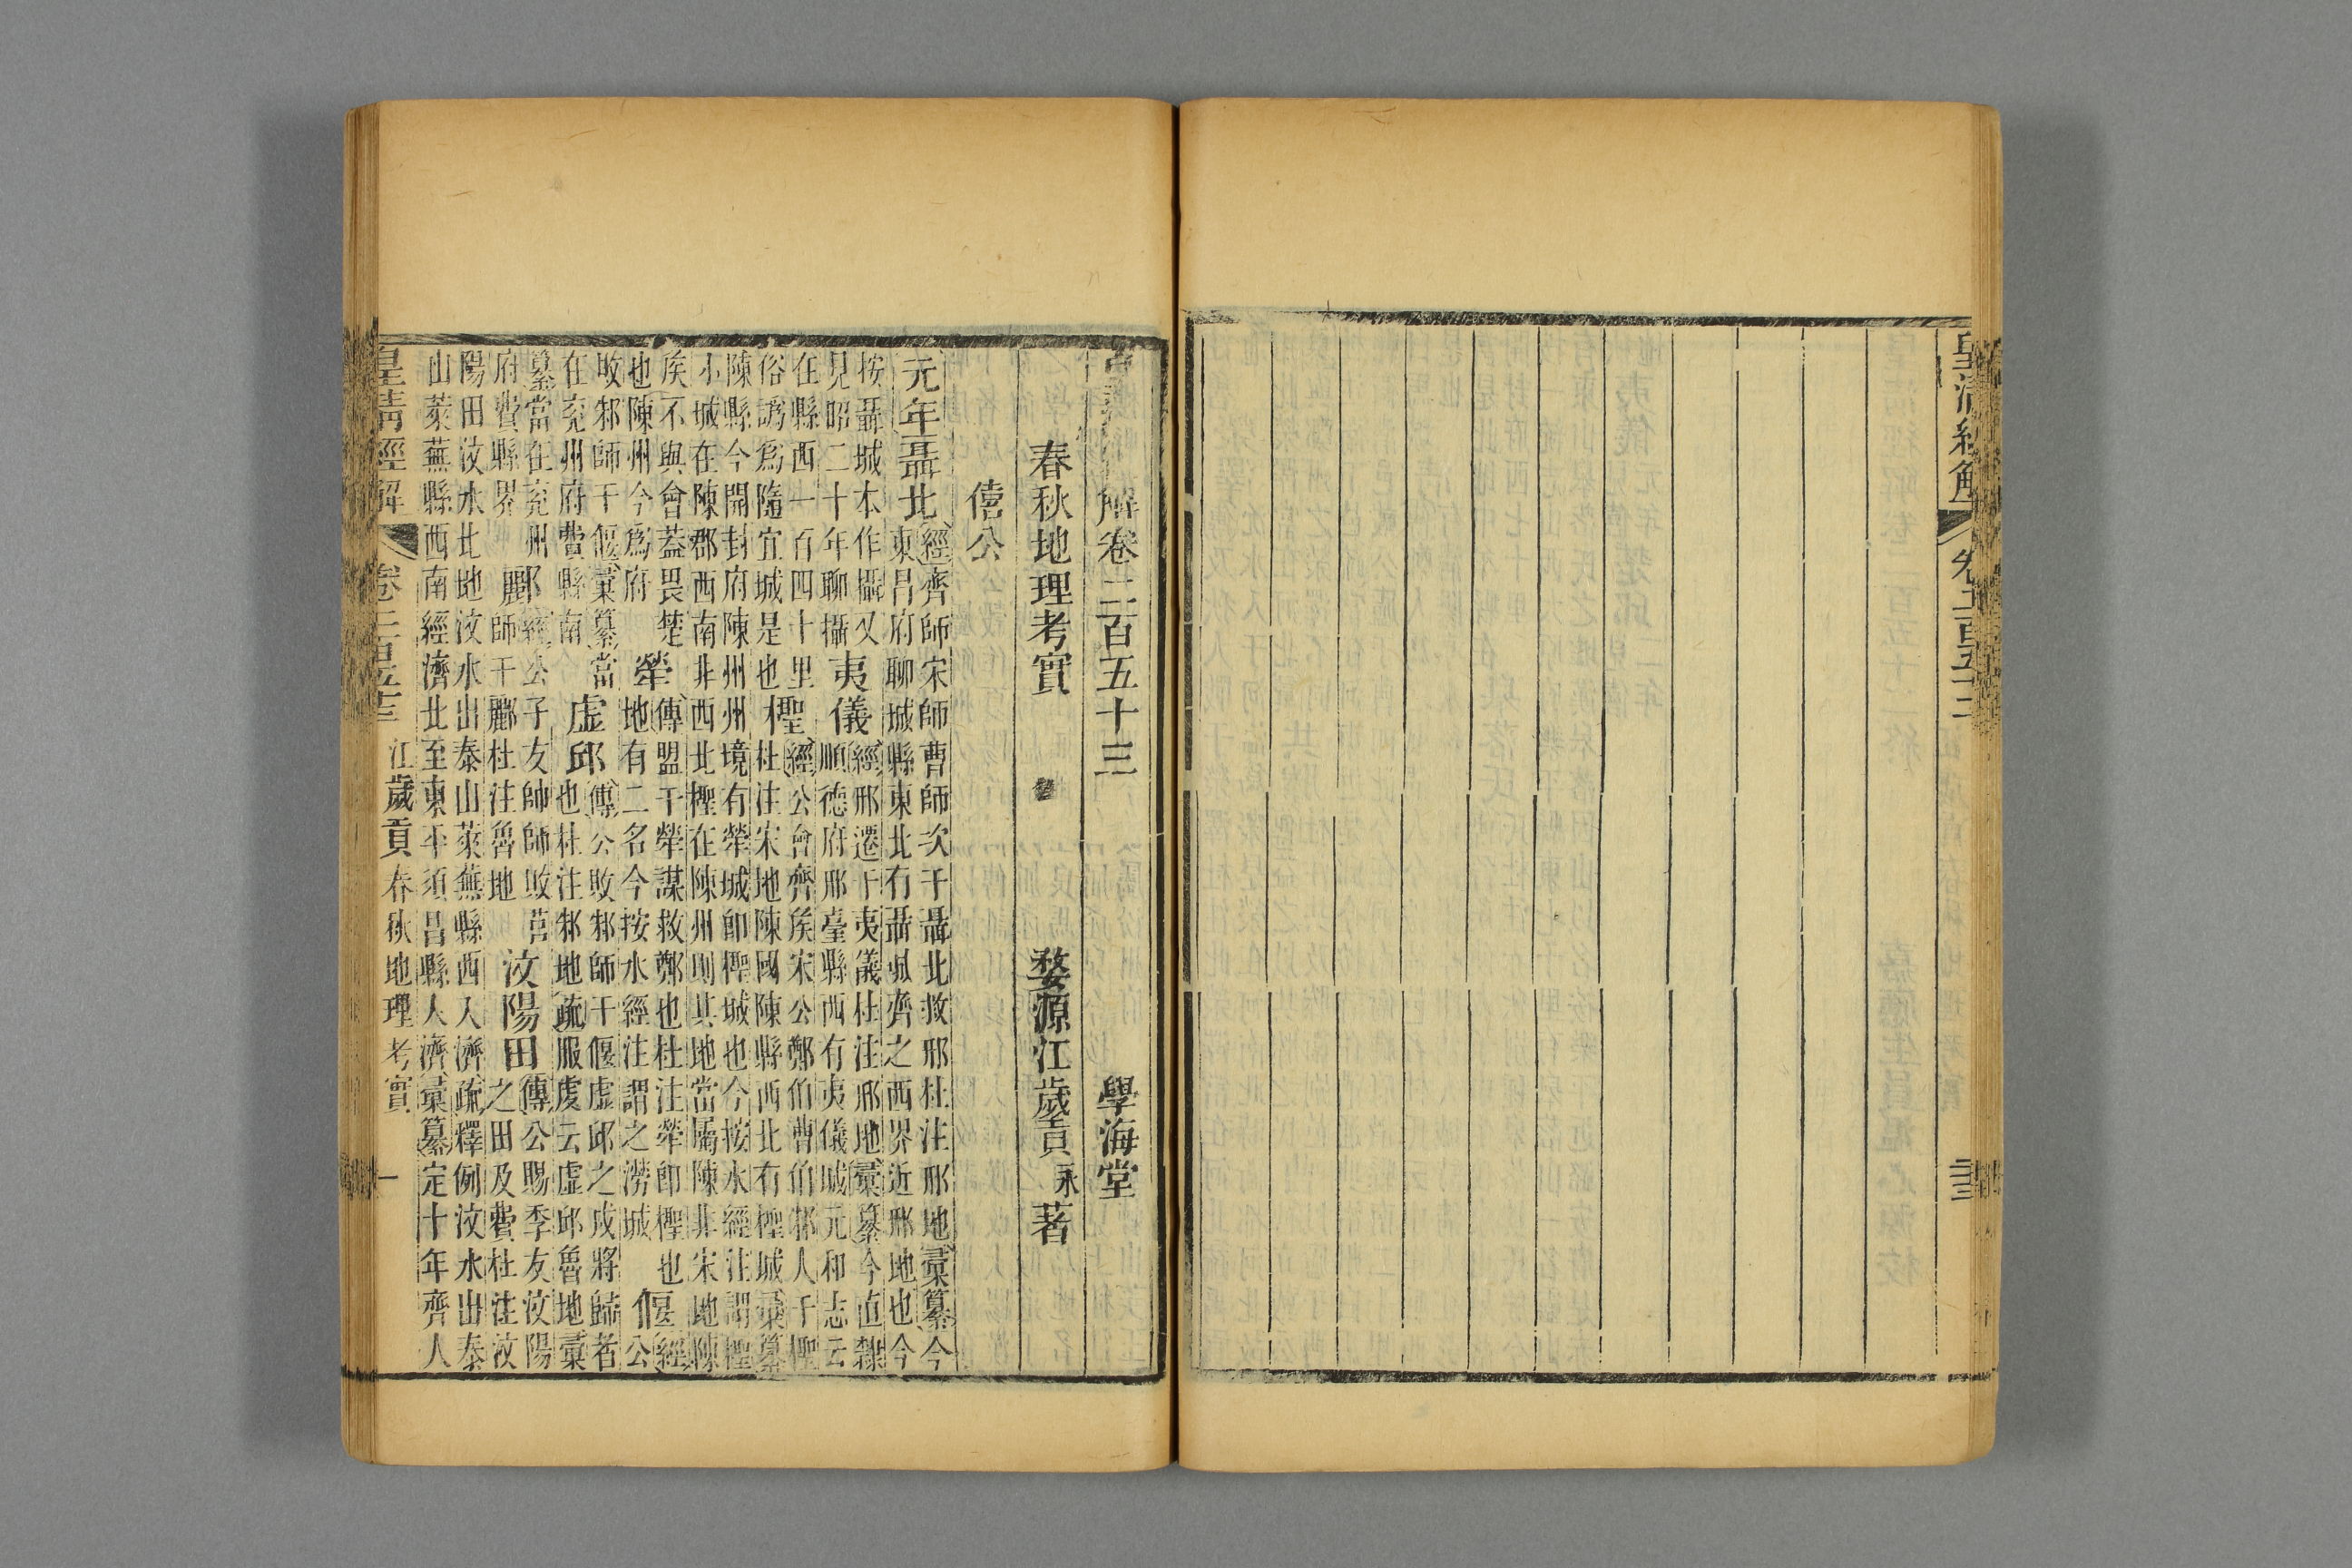 皇清經解 卷二百五十二
解卷二百五十三 學海堂
春秋地理考實 婺源江歲貢永著
僖公
元年聶北 經齊師宋師曹師次于聶北救邢杜注邢地彙纂今
東昌府聊城縣東北有聶城齊之西界近邢地也今
按聶城本作攝又
見昭二十年聊攝
夷儀 經邢遷于夷儀杜注邢地彙纂今直隸
順德府邢臺縣西有夷儀城元和志云
在縣西一百四十里
俗譌爲隨宜城是也
檉 經公會齊矦宋公鄭伯曹伯邾人于檉
杜注宋地陳國陳縣西北有檉城彙纂
陳縣今開封府陳州州境有犖城卽檉城也今按水經注謂檉
小城在陳郡西南非西北檉在陳州則其地當屬陳非宋地陳
矦不與會蓋畏楚
也陳州今爲府
犖 傳盟于犖謀救鄭也杜注犖卽檉也
地有二名今按水經注謂之澇城
偃 經
公
敗邾師于偃彙纂當
在兗州府費縣南
虛邱 傳公敗邾師于偃虛邱之戍將歸者
也杜注邾地疏服虔云虛邱魯地彙
纂當在兗州
府費縣界
酈 經公子友帥師敗莒
師于酈杜注魯地
汶陽田 傳公賜季友汶陽
之田及費杜注汶
陽田汶水北地汶水出泰山萊蕪縣西入濟疏釋例汶水出泰
山萊蕪縣西南經濟北至東平須昌縣入濟彙纂定十年齊人
皇清經解 卷二百五十三 江歲貢春秋地理考實 一